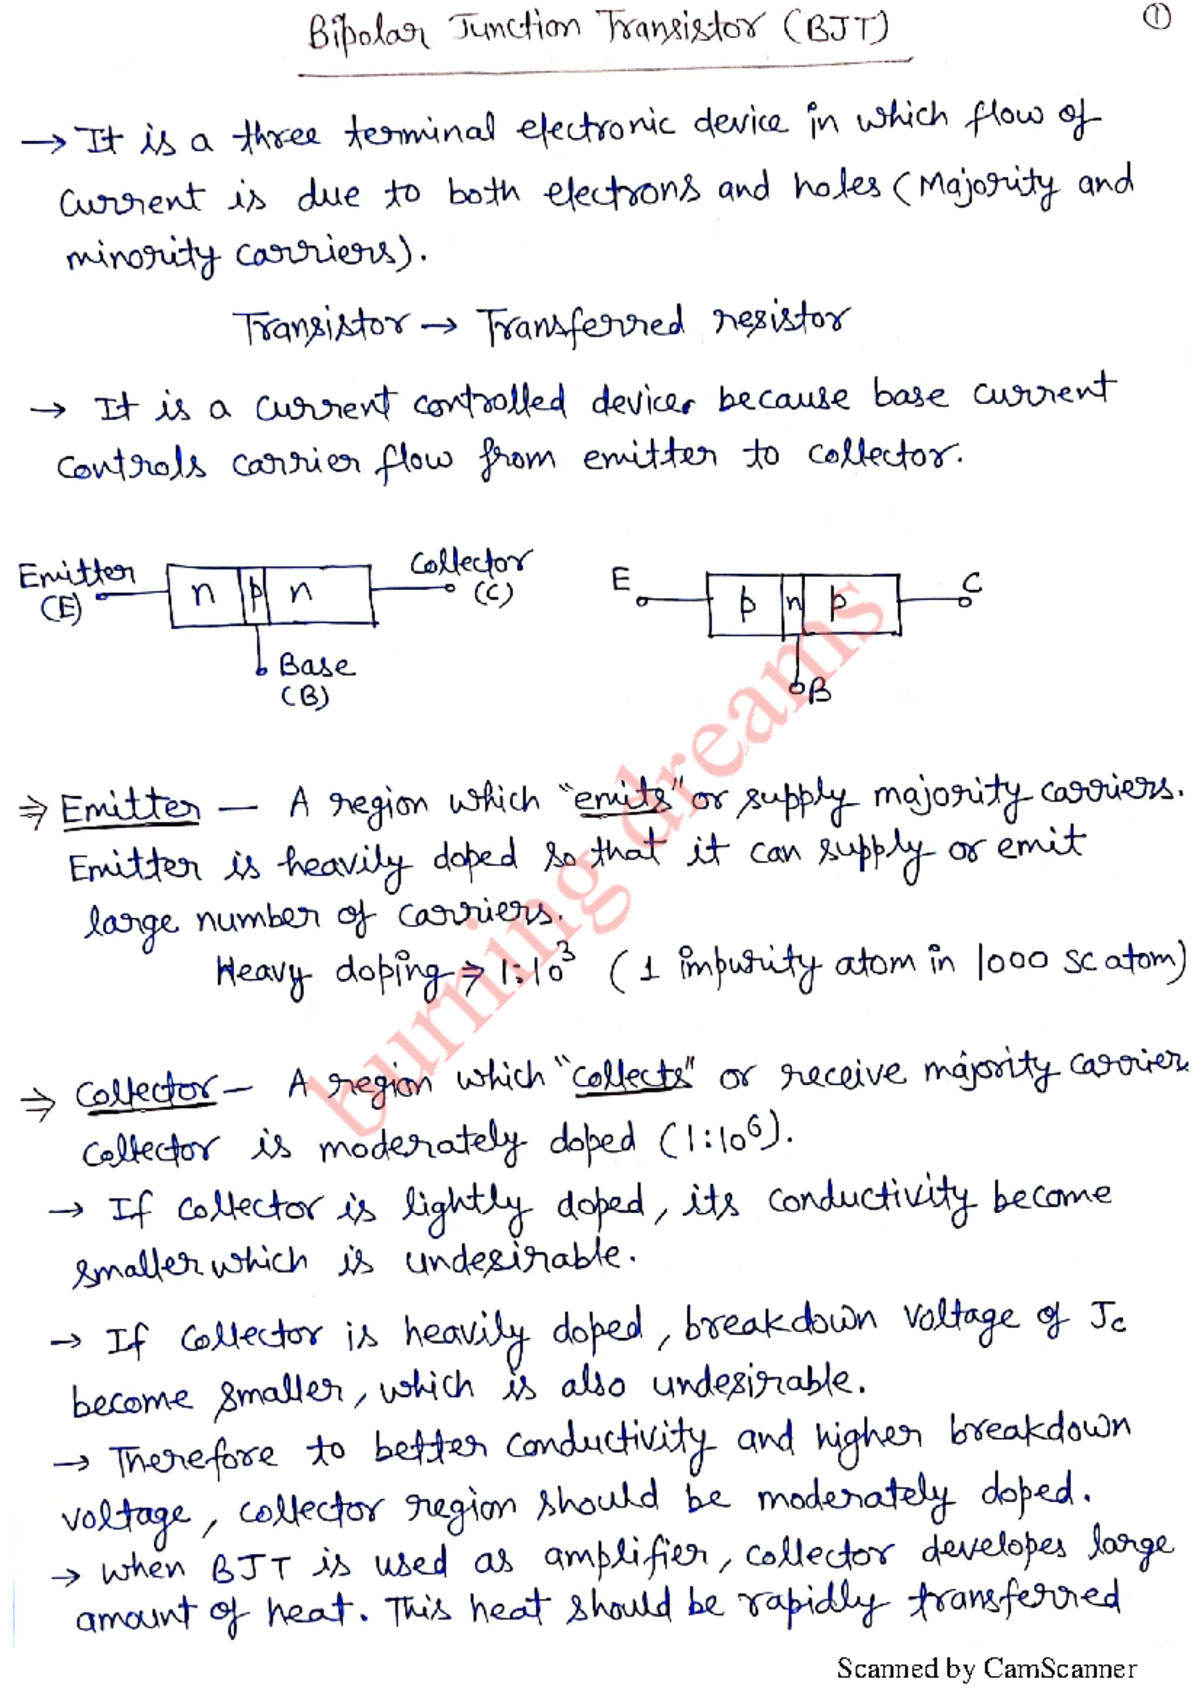 Bipolar Junction Transistor (BJT)
1
→ It is a three terminal electronic device in which flow of
current is due to both electrons and holes (Majority and
minority carriers).
Transistor → Transferred resistor
→ It is a current controlled device, because base current
controls carrier flow from emitter to collector.
Emitter
(E)
n p n
Collector
(C)
Base
(B)
E
p n p
C
B
⇒ Emitter — A region which "emits" or supply majority carriers.
Emitter is heavily doped so that it can supply or emit
large number of carriers.
Heavy doping ⇒ 1:10³ (1 impurity atom in 1000 sc atom)
⇒ Collector — A region which "collects" or receive majority carrier
Collector is moderately doped (1:10⁶).
→ If collector is lightly doped, its conductivity become
smaller which is undesirable.
→ If collector is heavily doped, breakdown voltage of Jc
become smaller, which is also undesirable.
→ Therefore to better conductivity and higher breakdown
voltage, collector region should be moderately doped.
→ when BJT is used as amplifier, collector developes large
amount of heat. This heat should be rapidly transferred
burning dreams
Scanned by CamScanner